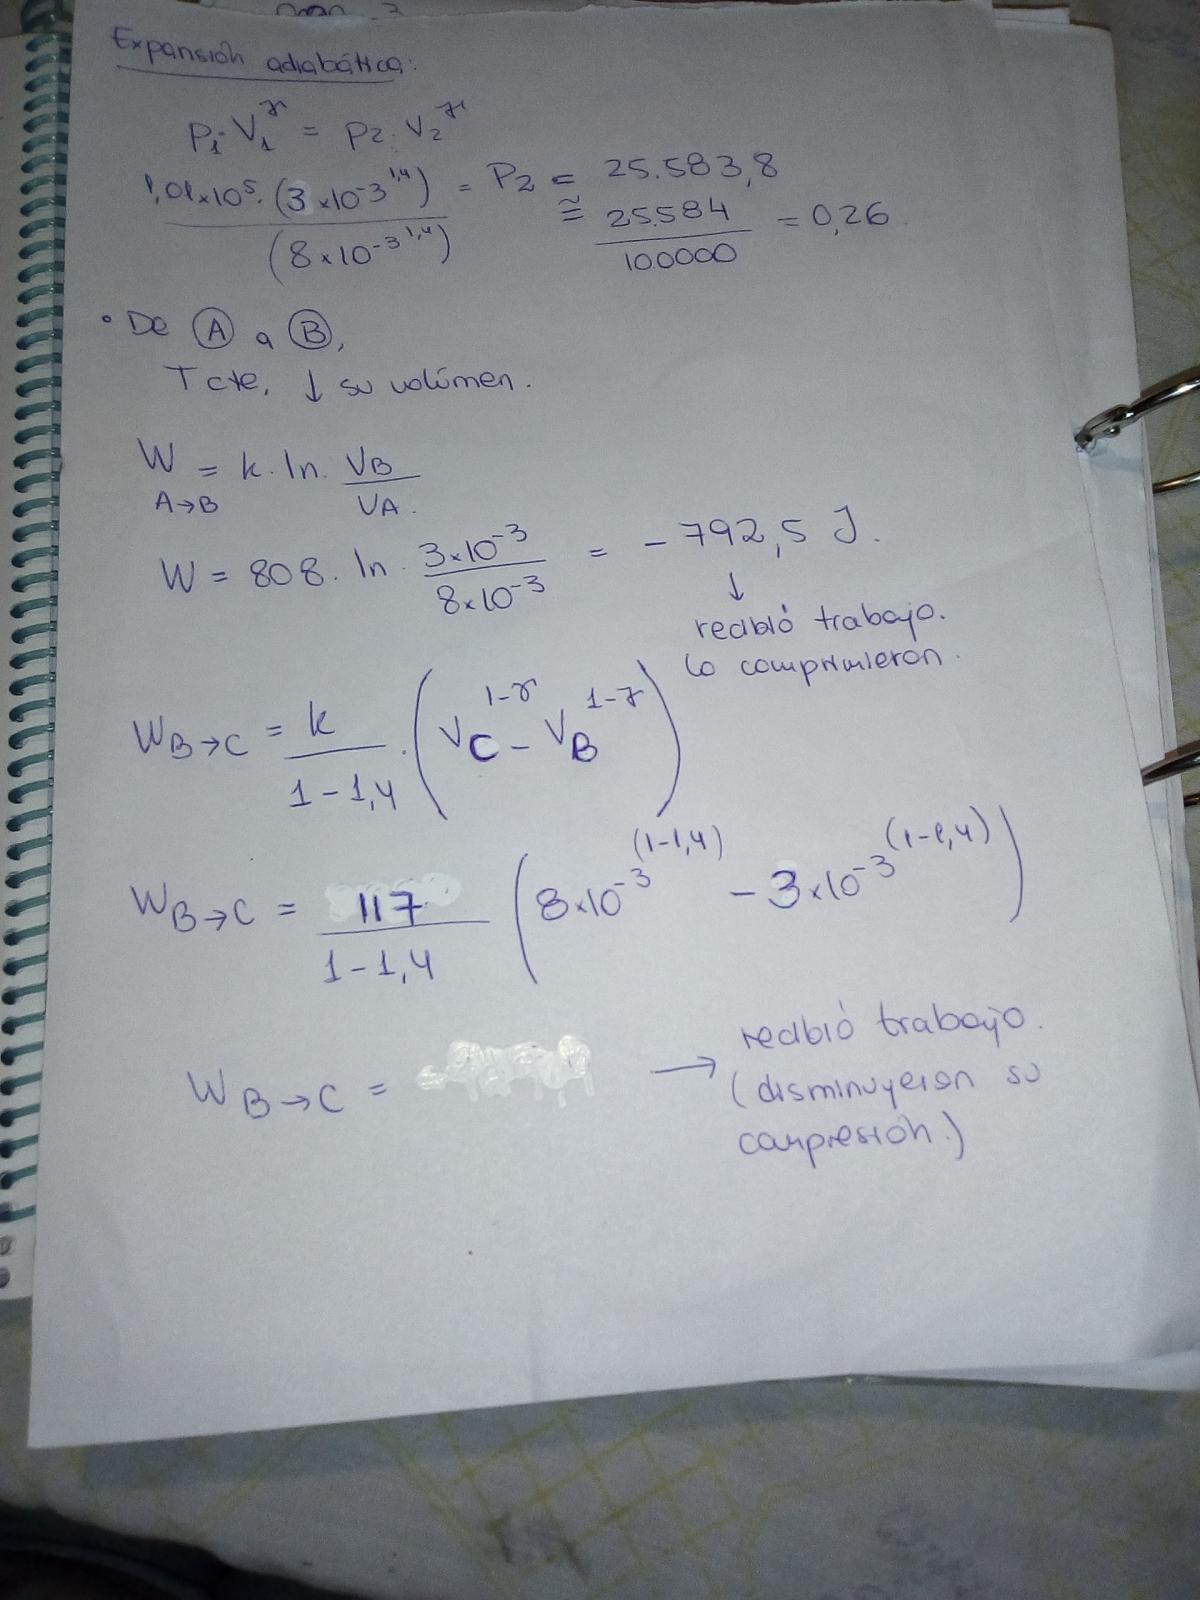 Expansión adiabática:
P₁·V₁^γ = P₂·V₂^γ
1,01×10⁵·(3×10⁻³ ^1,4) / (8×10⁻³ ^1,4) = P₂ = 25.583,8
≅ 25.584 / 100000 = 0,26
• De Ⓐ a Ⓑ,
T cte, ↓ su volúmen.
W A→B = k·ln·VB / VA.
W = 808·ln·3×10⁻³ / 8×10⁻³ = -792,5 J.
↓
recibió trabajo.
lo comprimieron.
W B→C = k / 1-1,4 · (VC^1-γ - VB^1-γ)
W B→C = 117 / 1-1,4 (8×10⁻³ ^(1-1,4) - 3×10⁻³ ^(1-1,4))
W B→C = → recibió trabajo.
(disminuyeron su
compresión.)